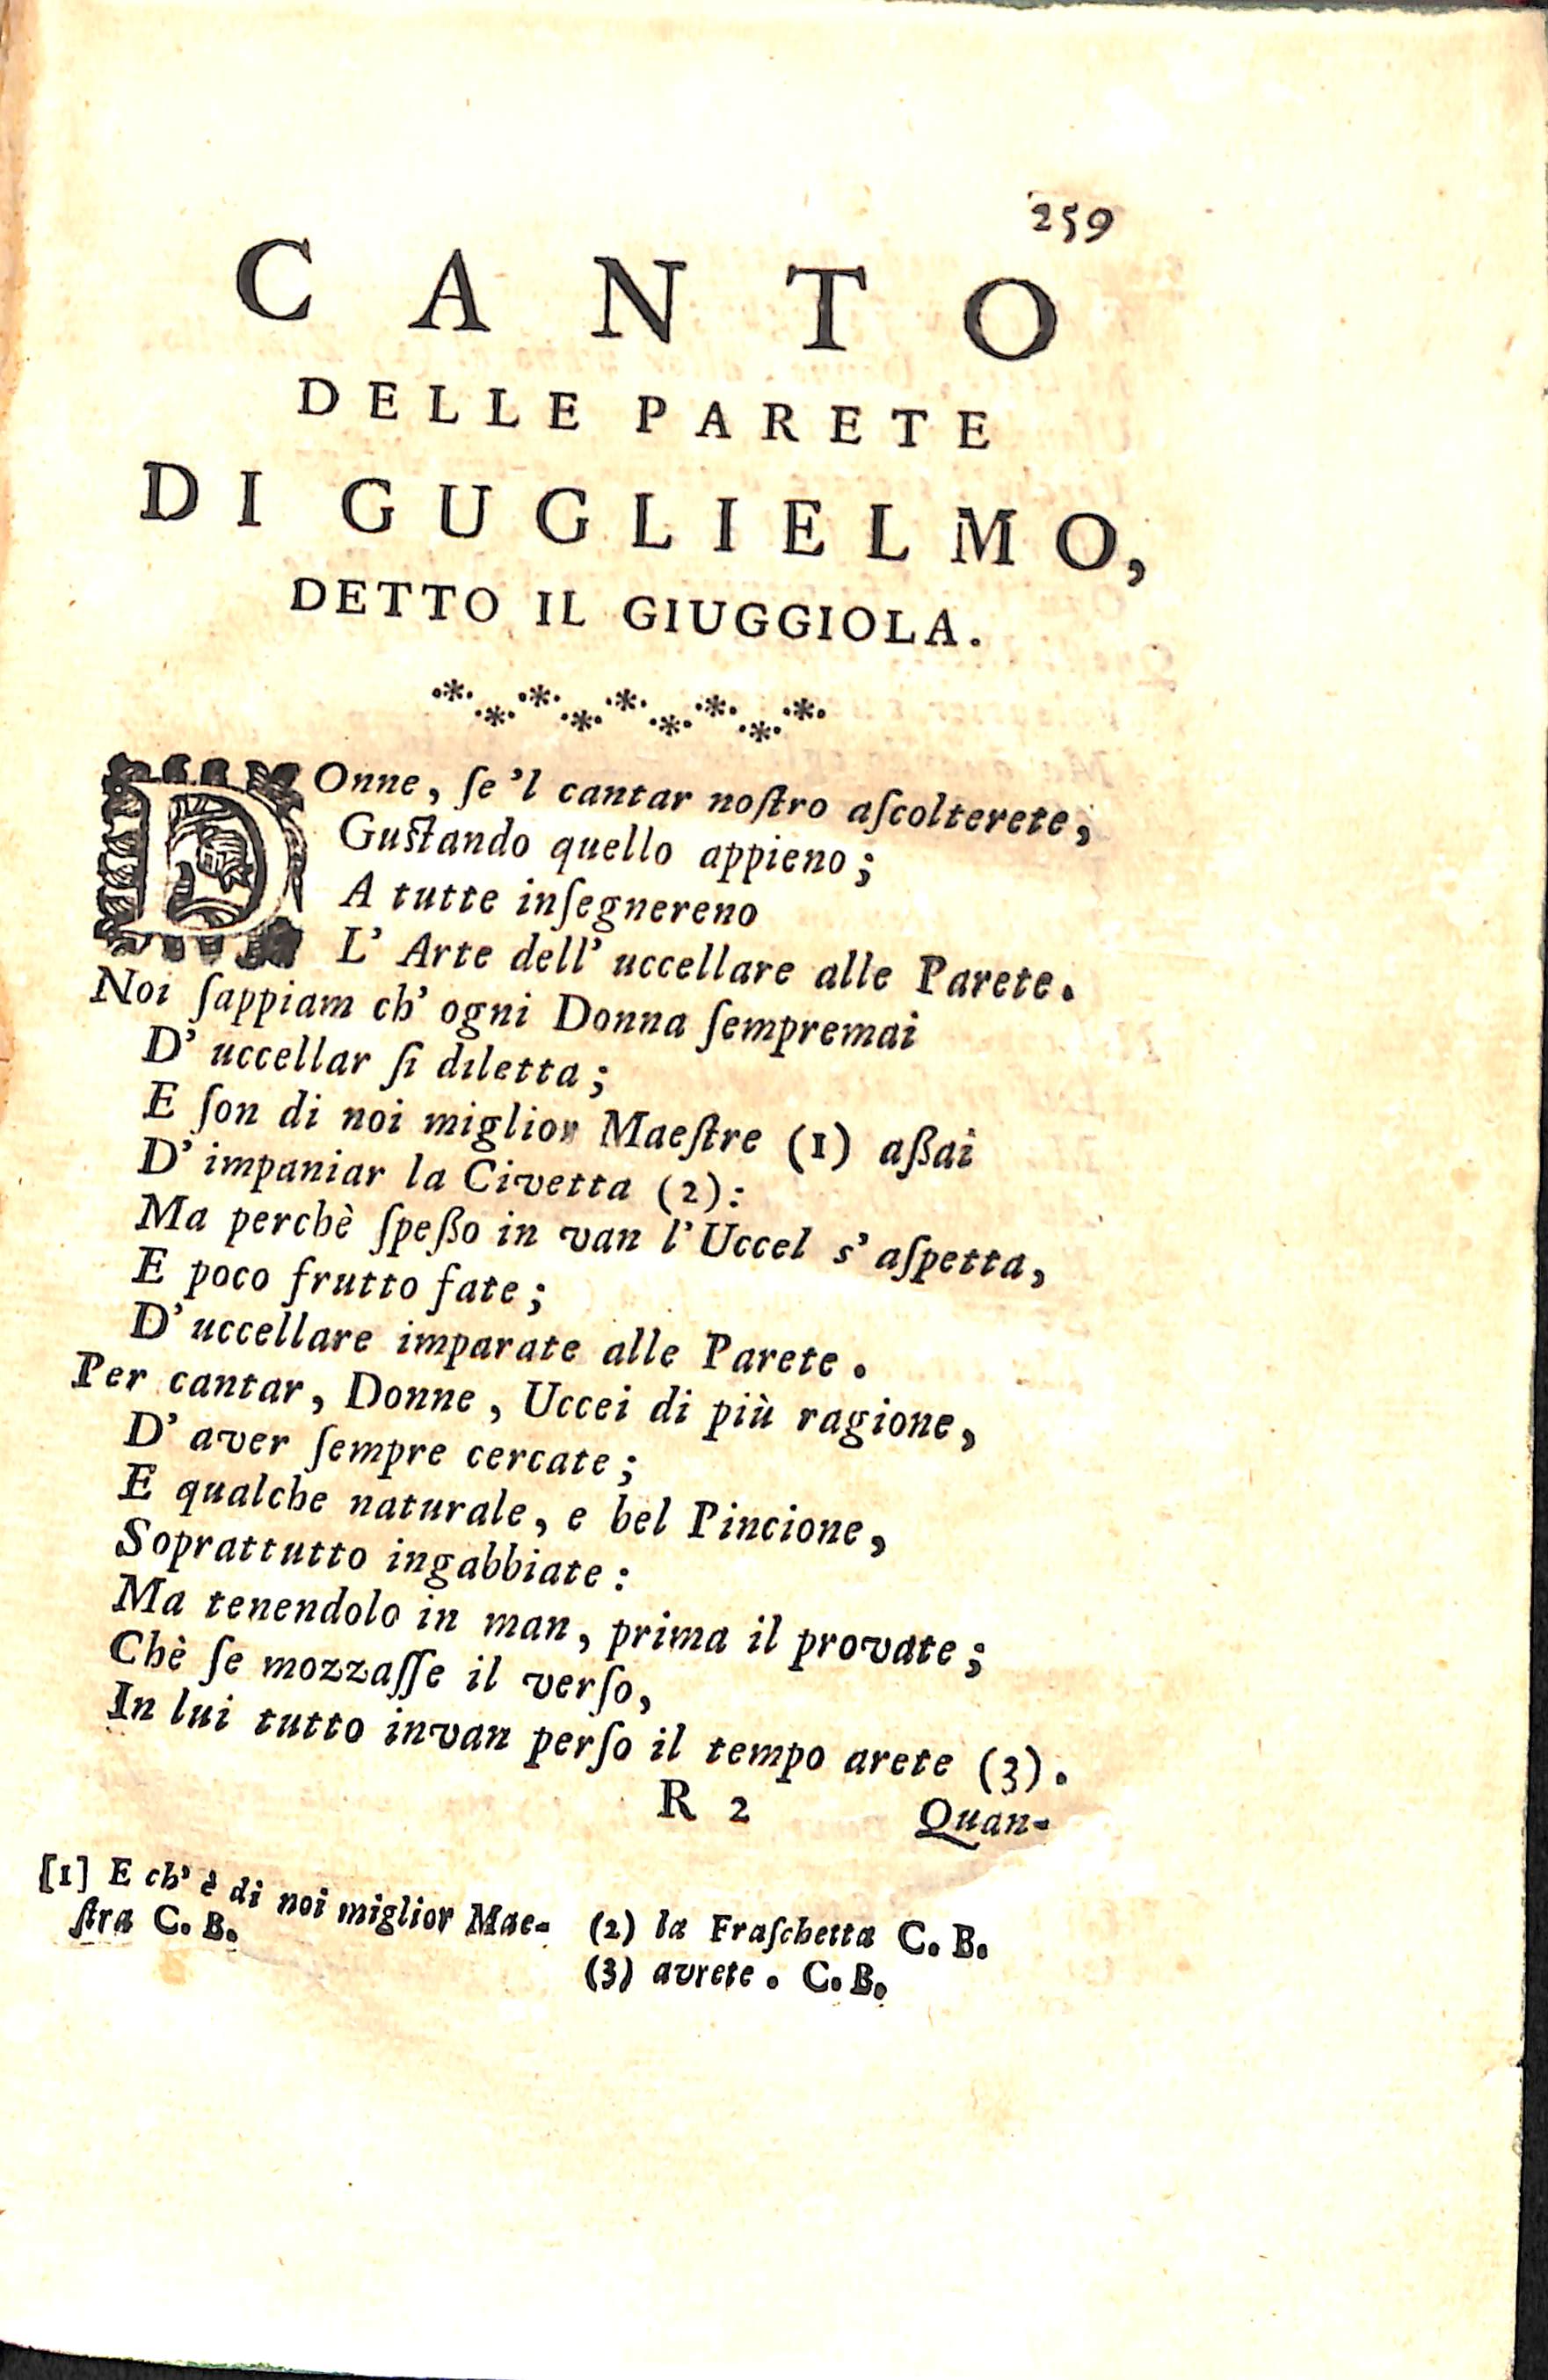 259
CANTO
DELLE PARETE
DI GUGLIELMO,
DETTO IL GIUGGIOLA.
DOnne, ſe 'l cantar noſtro aſcolterete,
Guſtando quello appieno;
A tutte inſegnereno
L' Arte dell' uccellare alle Parete.
Noi ſappiam ch' ogni Donna ſempremai
D' uccellar ſi diletta;
E ſon di noi miglior Maeſtre (1) aßai
D' impaniar la Civetta (2):
Ma perchè ſpeßo in van l' Uccel s' aſpetta,
E poco frutto fate;
D' uccellare imparate alle Parete.
Per cantar, Donne, Uccei di più ragione,
D' aver ſempre cercate;
E qualche naturale, e bel Pincione,
Soprattutto ingabbiate:
Ma tenendolo in man, prima il provate;
Chè ſe mozzaſſe il verſo,
In lui tutto invan perſo il tempo arete (3).
R 2 Quan-
[1] E ch' è di noi miglior Mae-
ſtra C. B.
(2) la Fraſchetta C. B.
(3) avrete. C. B.